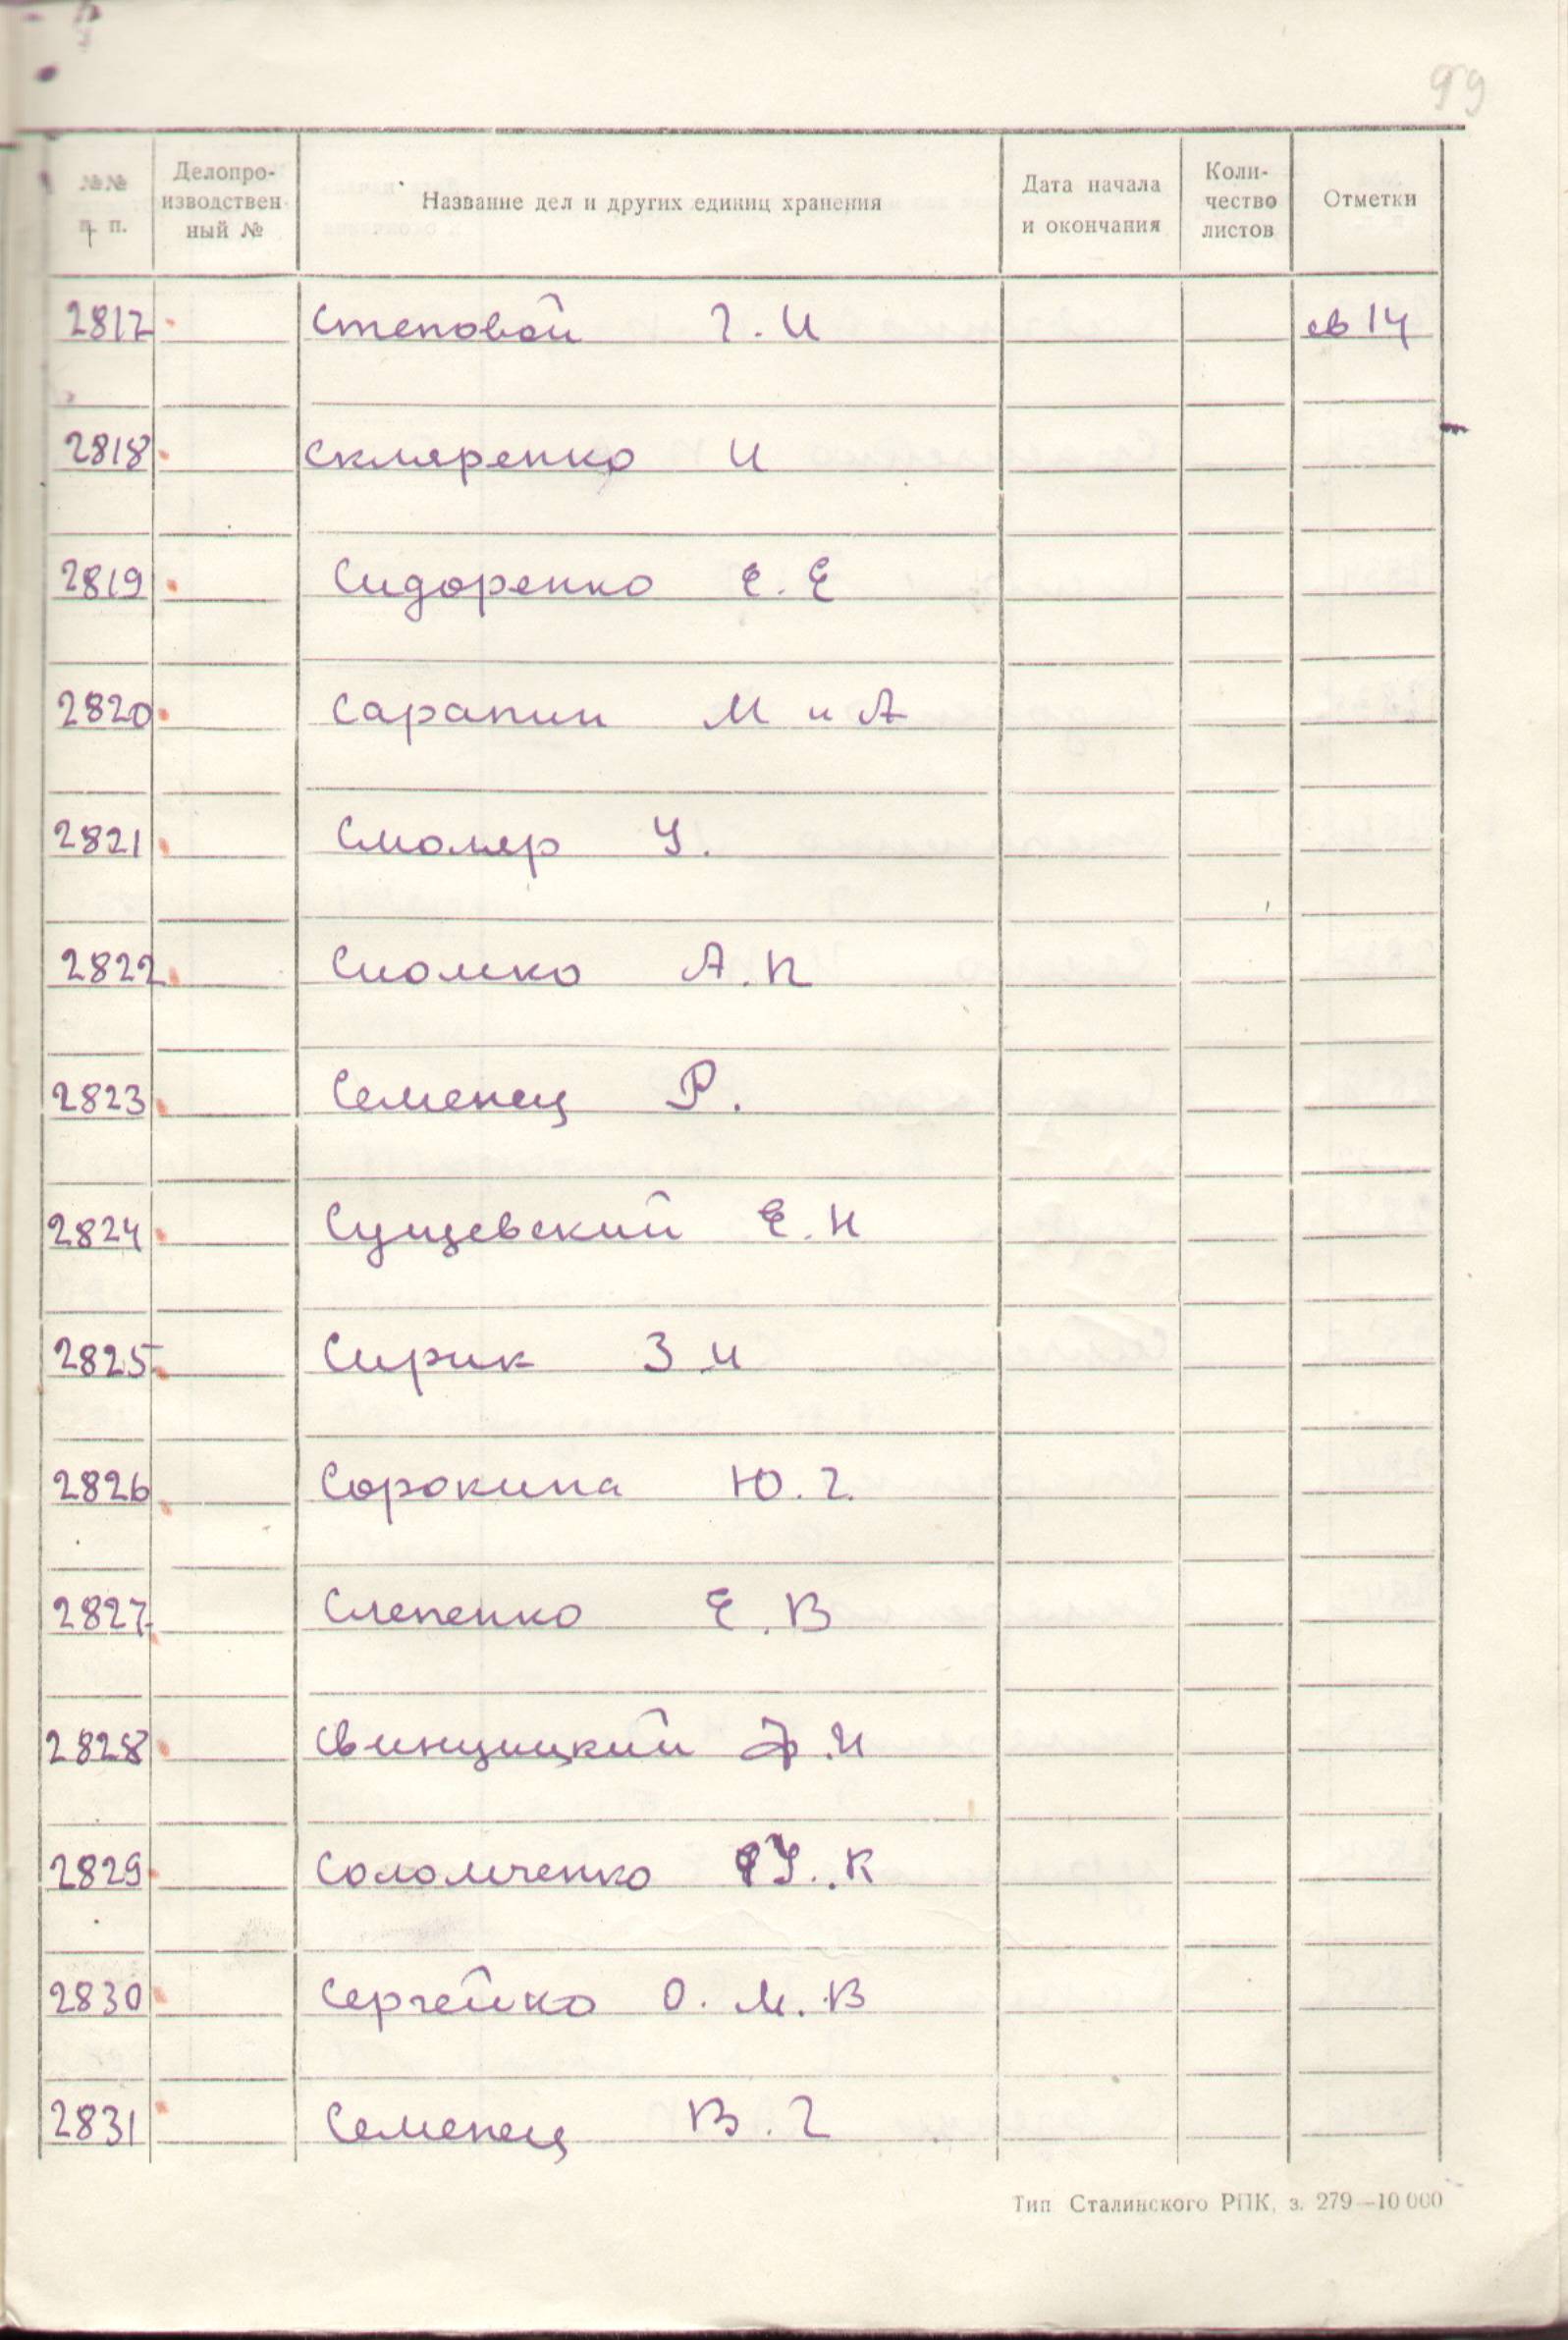 99
№№ п. п. Делопро-изводствен-ный № Название дел и других единиц хранения Дата начала и окончания Коли-чество листов Отметки
2817 Степовой Г. И св 14
2818 Скляренко И
2819 Сидоренко Е. Е
2820 Сарапин М и А
2821 Смоляр У.
2822 Сиомко А. П
2823 Семенец Р.
2824 Сущевский Е. Н
2825 Сирик З И
2826 Сорокина Ю. Г.
2827 Слепенко Е. В
2828 Свинцицкий Ф. И
2829 Соломченко У. К
2830 Сергейко О. М. В
2831 Семенец В. Г
Тип Сталинского РПК, з. 279—10 000